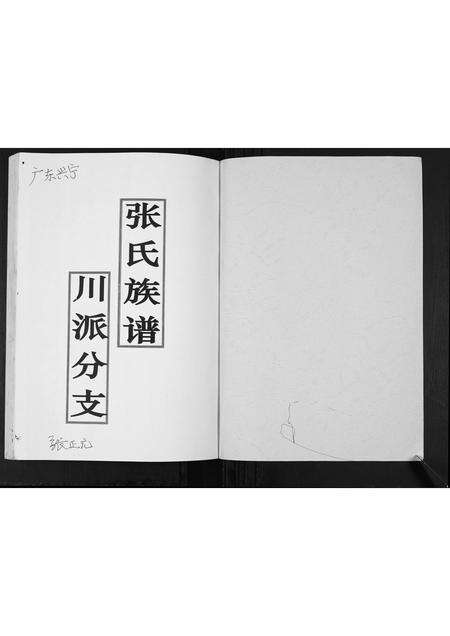 广东兴宁
张氏族谱
川派分支
张正元